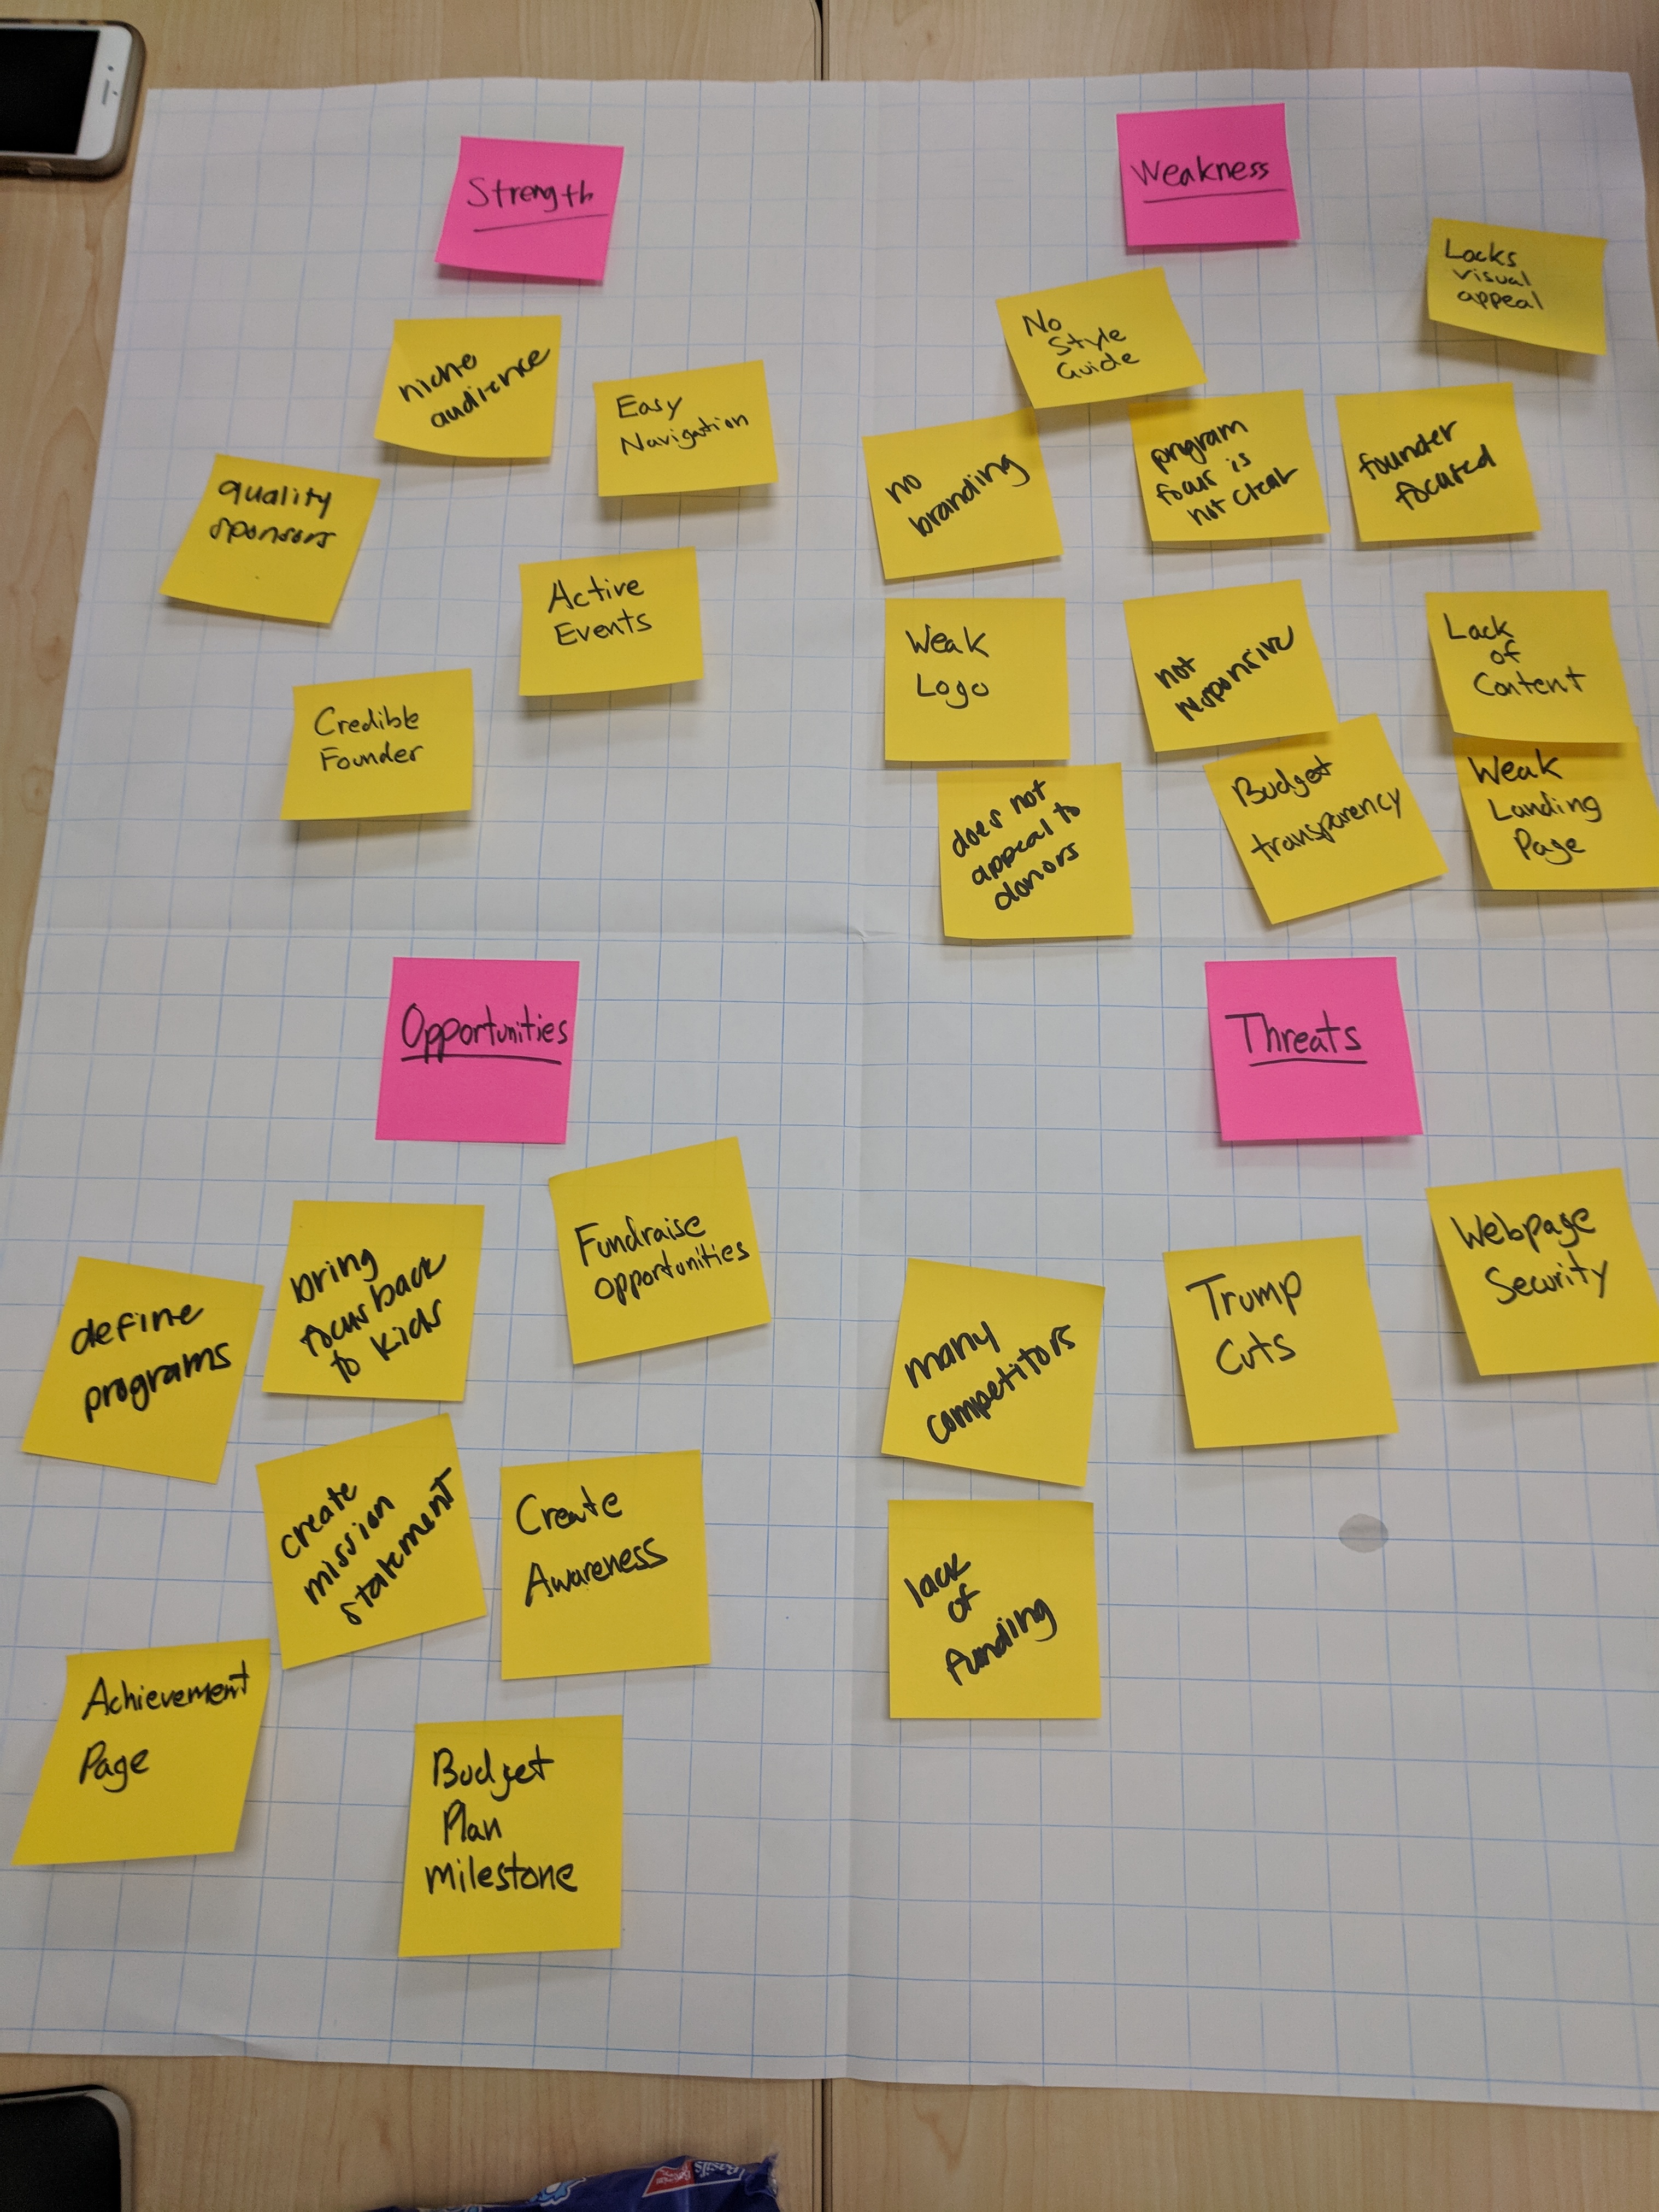 Strength
niche
audience
Easy
Navigation
quality
sponsors
Active
Events
Credible
Founder
Weakness
Lacks
visual
appeal
No
Style
Guide
no
branding
program
focus is
not clear
founder
focused
Weak
Logo
not
responsive
Lack
of
Content
does not
appeal to
donors
Budget
transparency
Weak
Landing
Page
Opportunities
Fundraise
opportunities
bring
focus back
to kids
define
programs
create
mission
statement
Create
Awareness
Achievement
Page
Budget
Plan
milestone
Threats
Webpage
Security
Trump
Cuts
many
competitors
lack
of
funding